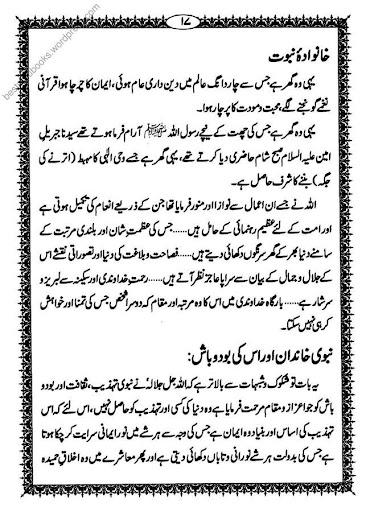 ۱۷
خانوادۂ نبوت
یہی وہ گھر ہے جس سے چار دانگ عالم میں دین داری عام ہوئی، ایمان کا چرچا ہوا قرآنی
نغمے گونجنے لگے، محبت و مودت کا پرچار ہوا۔
یہی وہ گھر ہے جس کی چھت کے نیچے رسول اللہ ﷺ آرام فرما ہوتے تھے سیدنا جبریل
امین علیہ السلام صبح شام حاضری دیا کرتے تھے، یہی گھر ہے جسے وحی الٰہی کا مہبط (اترنے کی
جگہ) بننے کا شرف حاصل ہے۔
اللہ نے جسے ان اعمال سے نوازا اور منور فرمایا تھا جن کے ذریعے انعام کی تکمیل ہوتی ہے
اور امت کے لئے عظیم رہنمائی کے حامل ہیں...... جس کی عظمتِ شان اور بلندی مرتبت کے
سامنے دنیا بھر کے گھر سرنگوں دکھائی دیتے ہیں...... فصاحت و بلاغت کی دنیا اور تصوراتی نقشے اس
کے جلال و جمال کے بیان سے سراپا عاجز نظر آتے ہیں...... رحمتِ خداوندی اور سکینہ سے لبریز و
سرشار ہے...... بارگاہ خداوندی میں اس کا وہ مرتبہ اور مقام کہ دوسرا شخص جس کی تمنا اور خواہش
کر ہی نہیں سکتا۔
نبوی خاندان اور اس کی بود و باش:
یہ بات تو شکوک و شبہات سے بالاتر ہے کہ اللہ جل جلالہٗ نے نبوی تہذیب، ثقافت اور بود و
باش کو جو اعزاز و مقام مرحمت فرمایا ہے وہ دنیا کی کسی اور تہذیب کو حاصل نہیں، اس لئے کہ اس
تہذیب کی اساس اور بنیاد وہ ایمان ہے جس کی وجہ سے ہر شے میں نور ایمانی سرایت کر چکا ہوتا
ہے جس کی بدولت ہر شے نورانی و تاباں دکھائی دیتی ہے اور پھر معاشرے میں وہ اخلاقِ حمیدہ